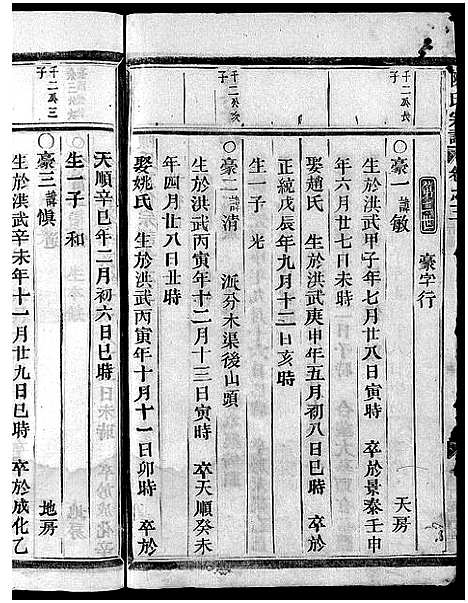 豪字行
千二公次子
○豪一諱敏 天房
生於洪武甲子年七月廿八日寅時 卒於景泰壬申
年六月廿七日未時
娶趙氏 生於洪武庚申年五月初八日巳時
正統戊辰年九月十二日亥時
生一子 光
千二公次子
○豪二諱清 派分木渠後山頭
生於洪武丙寅年十二月十三日寅時 卒天順癸未
年四月廿八日丑時
娶姚氏 生於洪武丙寅年十月十一日卯時 卒於
天順辛巳年二月初六日巳時
生一子 和
千二公三子
○豪三諱慎 地房
生於洪武辛未年十一月廿九日巳時 卒於成化乙